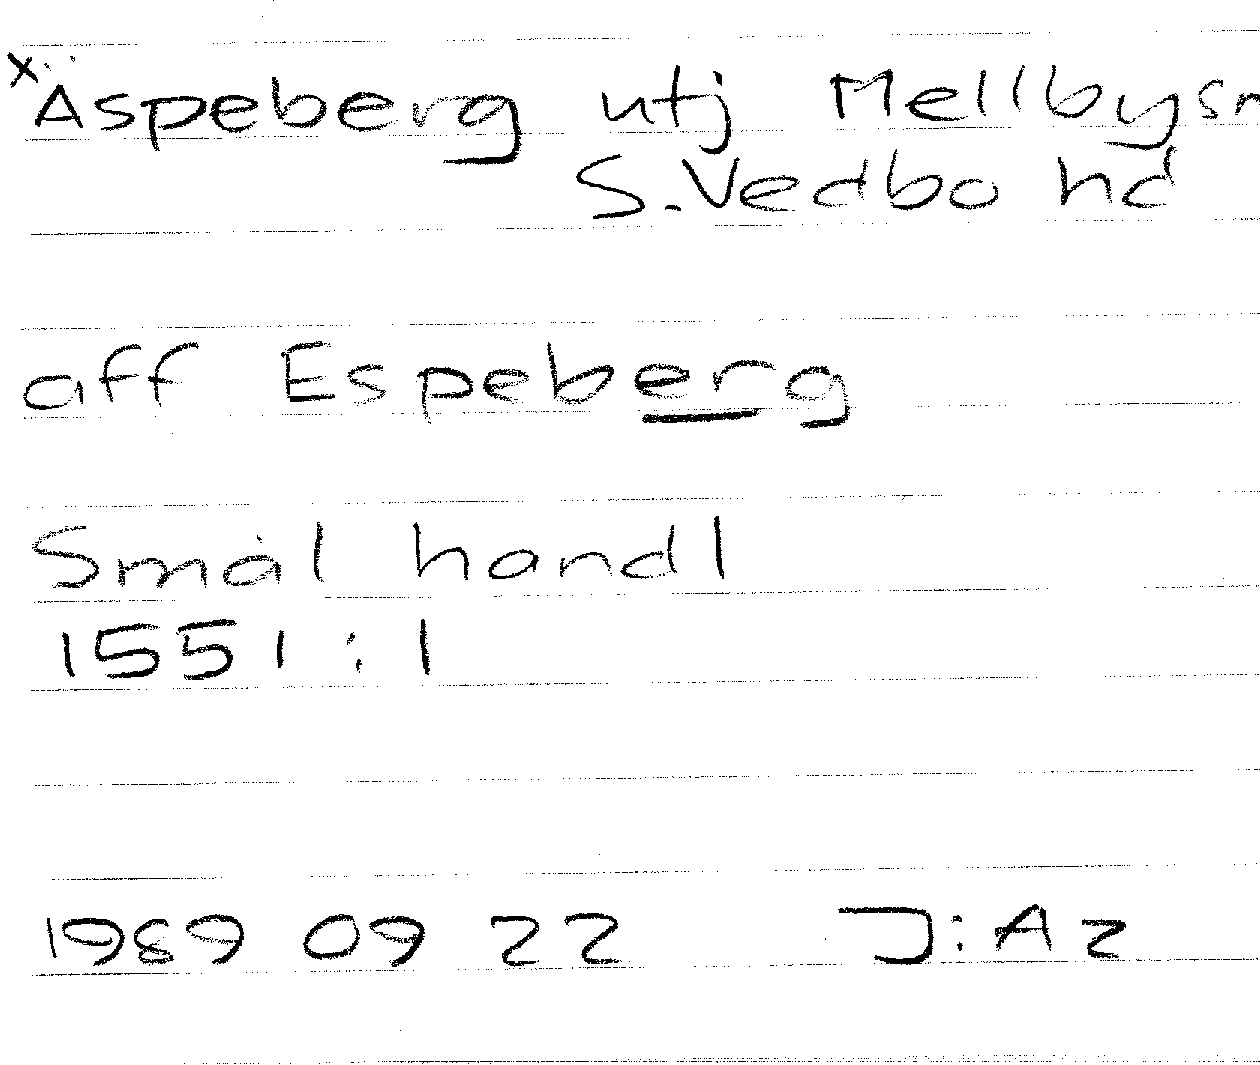 x Aspeberg utj Mellbysn
S. Vedbo hd
aff Espeberg
Smål handl
1551 : 1
1989 09 22 J:Az